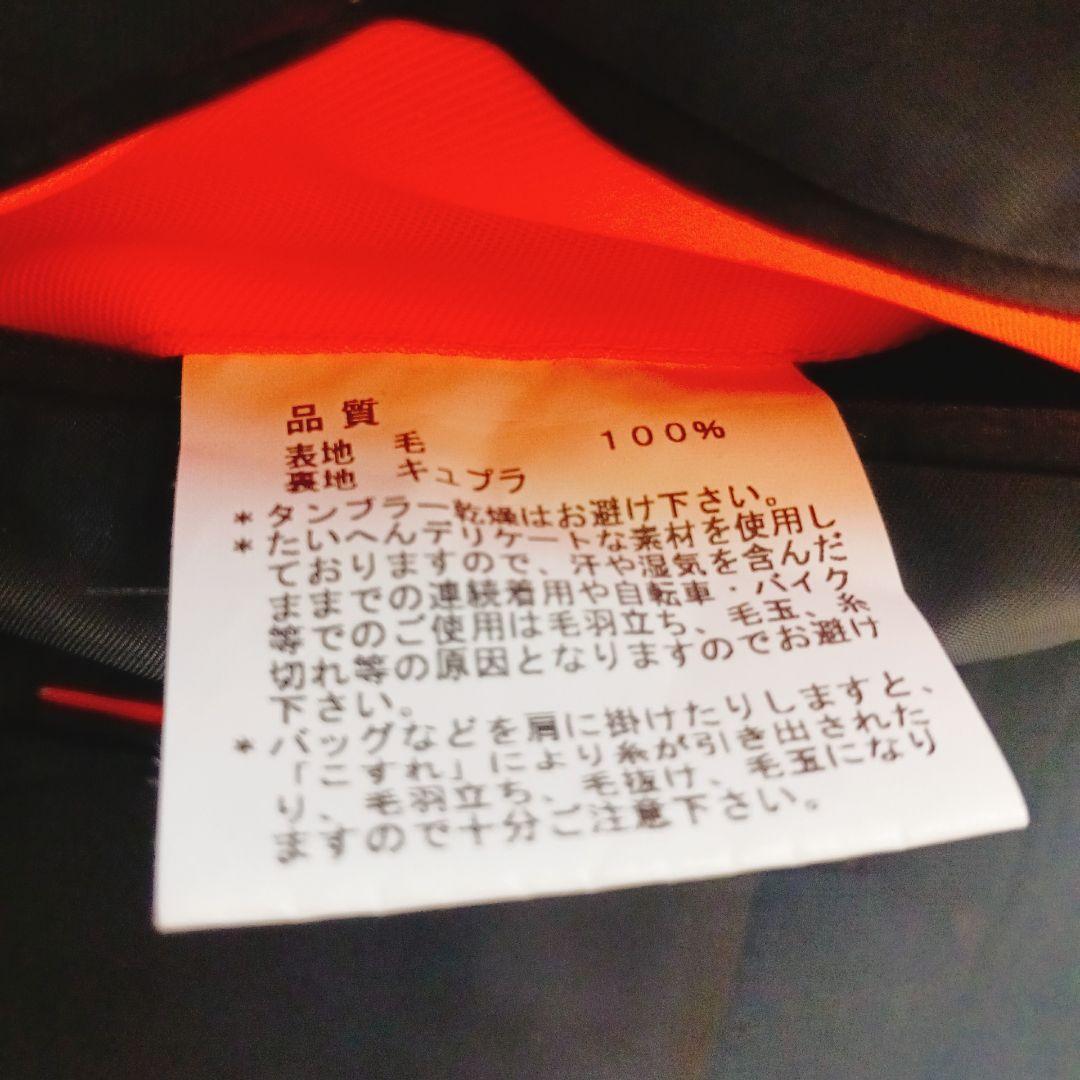 品質
表地 毛 100%
裏地 キュプラ
*タンブラー乾燥はお避け下さい。
*たいへんデリケートな素材を使用し
ておりますので、汗や湿気を含んだ
ままでの連続着用や自転車・バイク
等でのご使用は毛羽立ち、毛玉、糸
切れ等の原因となりますのでお避け
下さい。
*バッグなどを肩に掛けたりしますと、
「こすれ」により糸が引き出された
り、毛羽立ち、毛抜け、毛玉になり
ますので十分ご注意下さい。